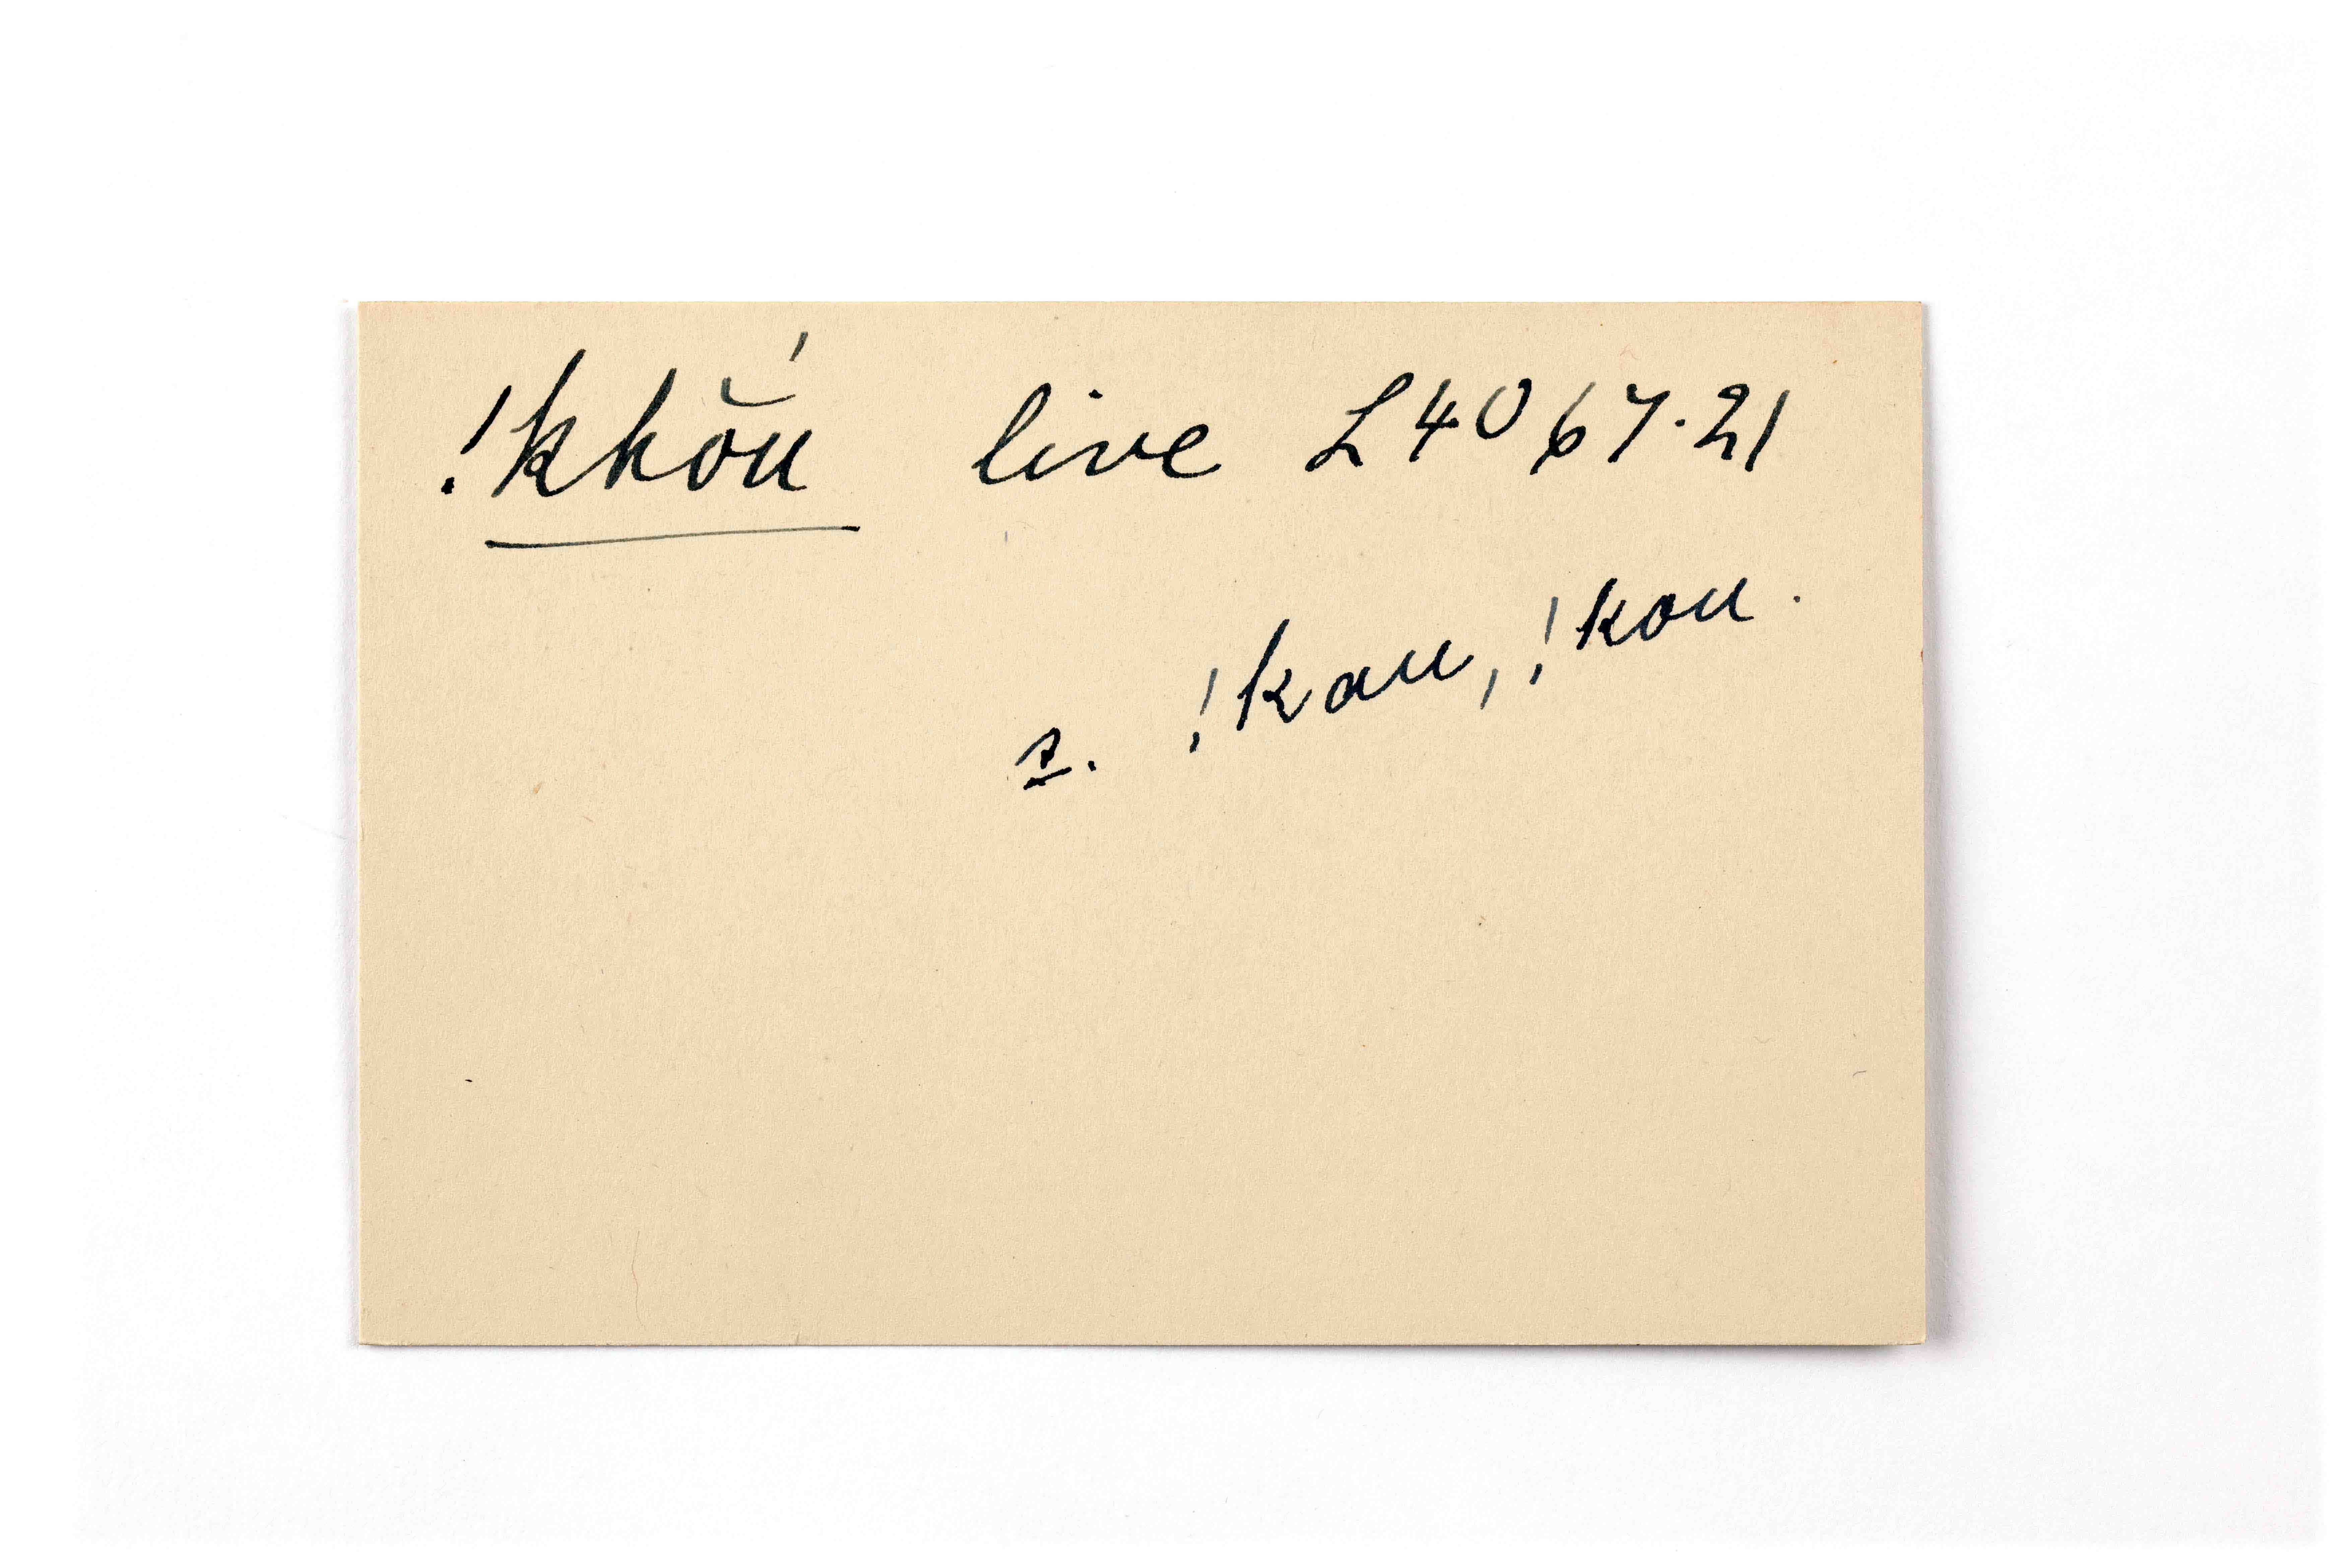 !khŏú live L4067.21
s. !kau, !kou.